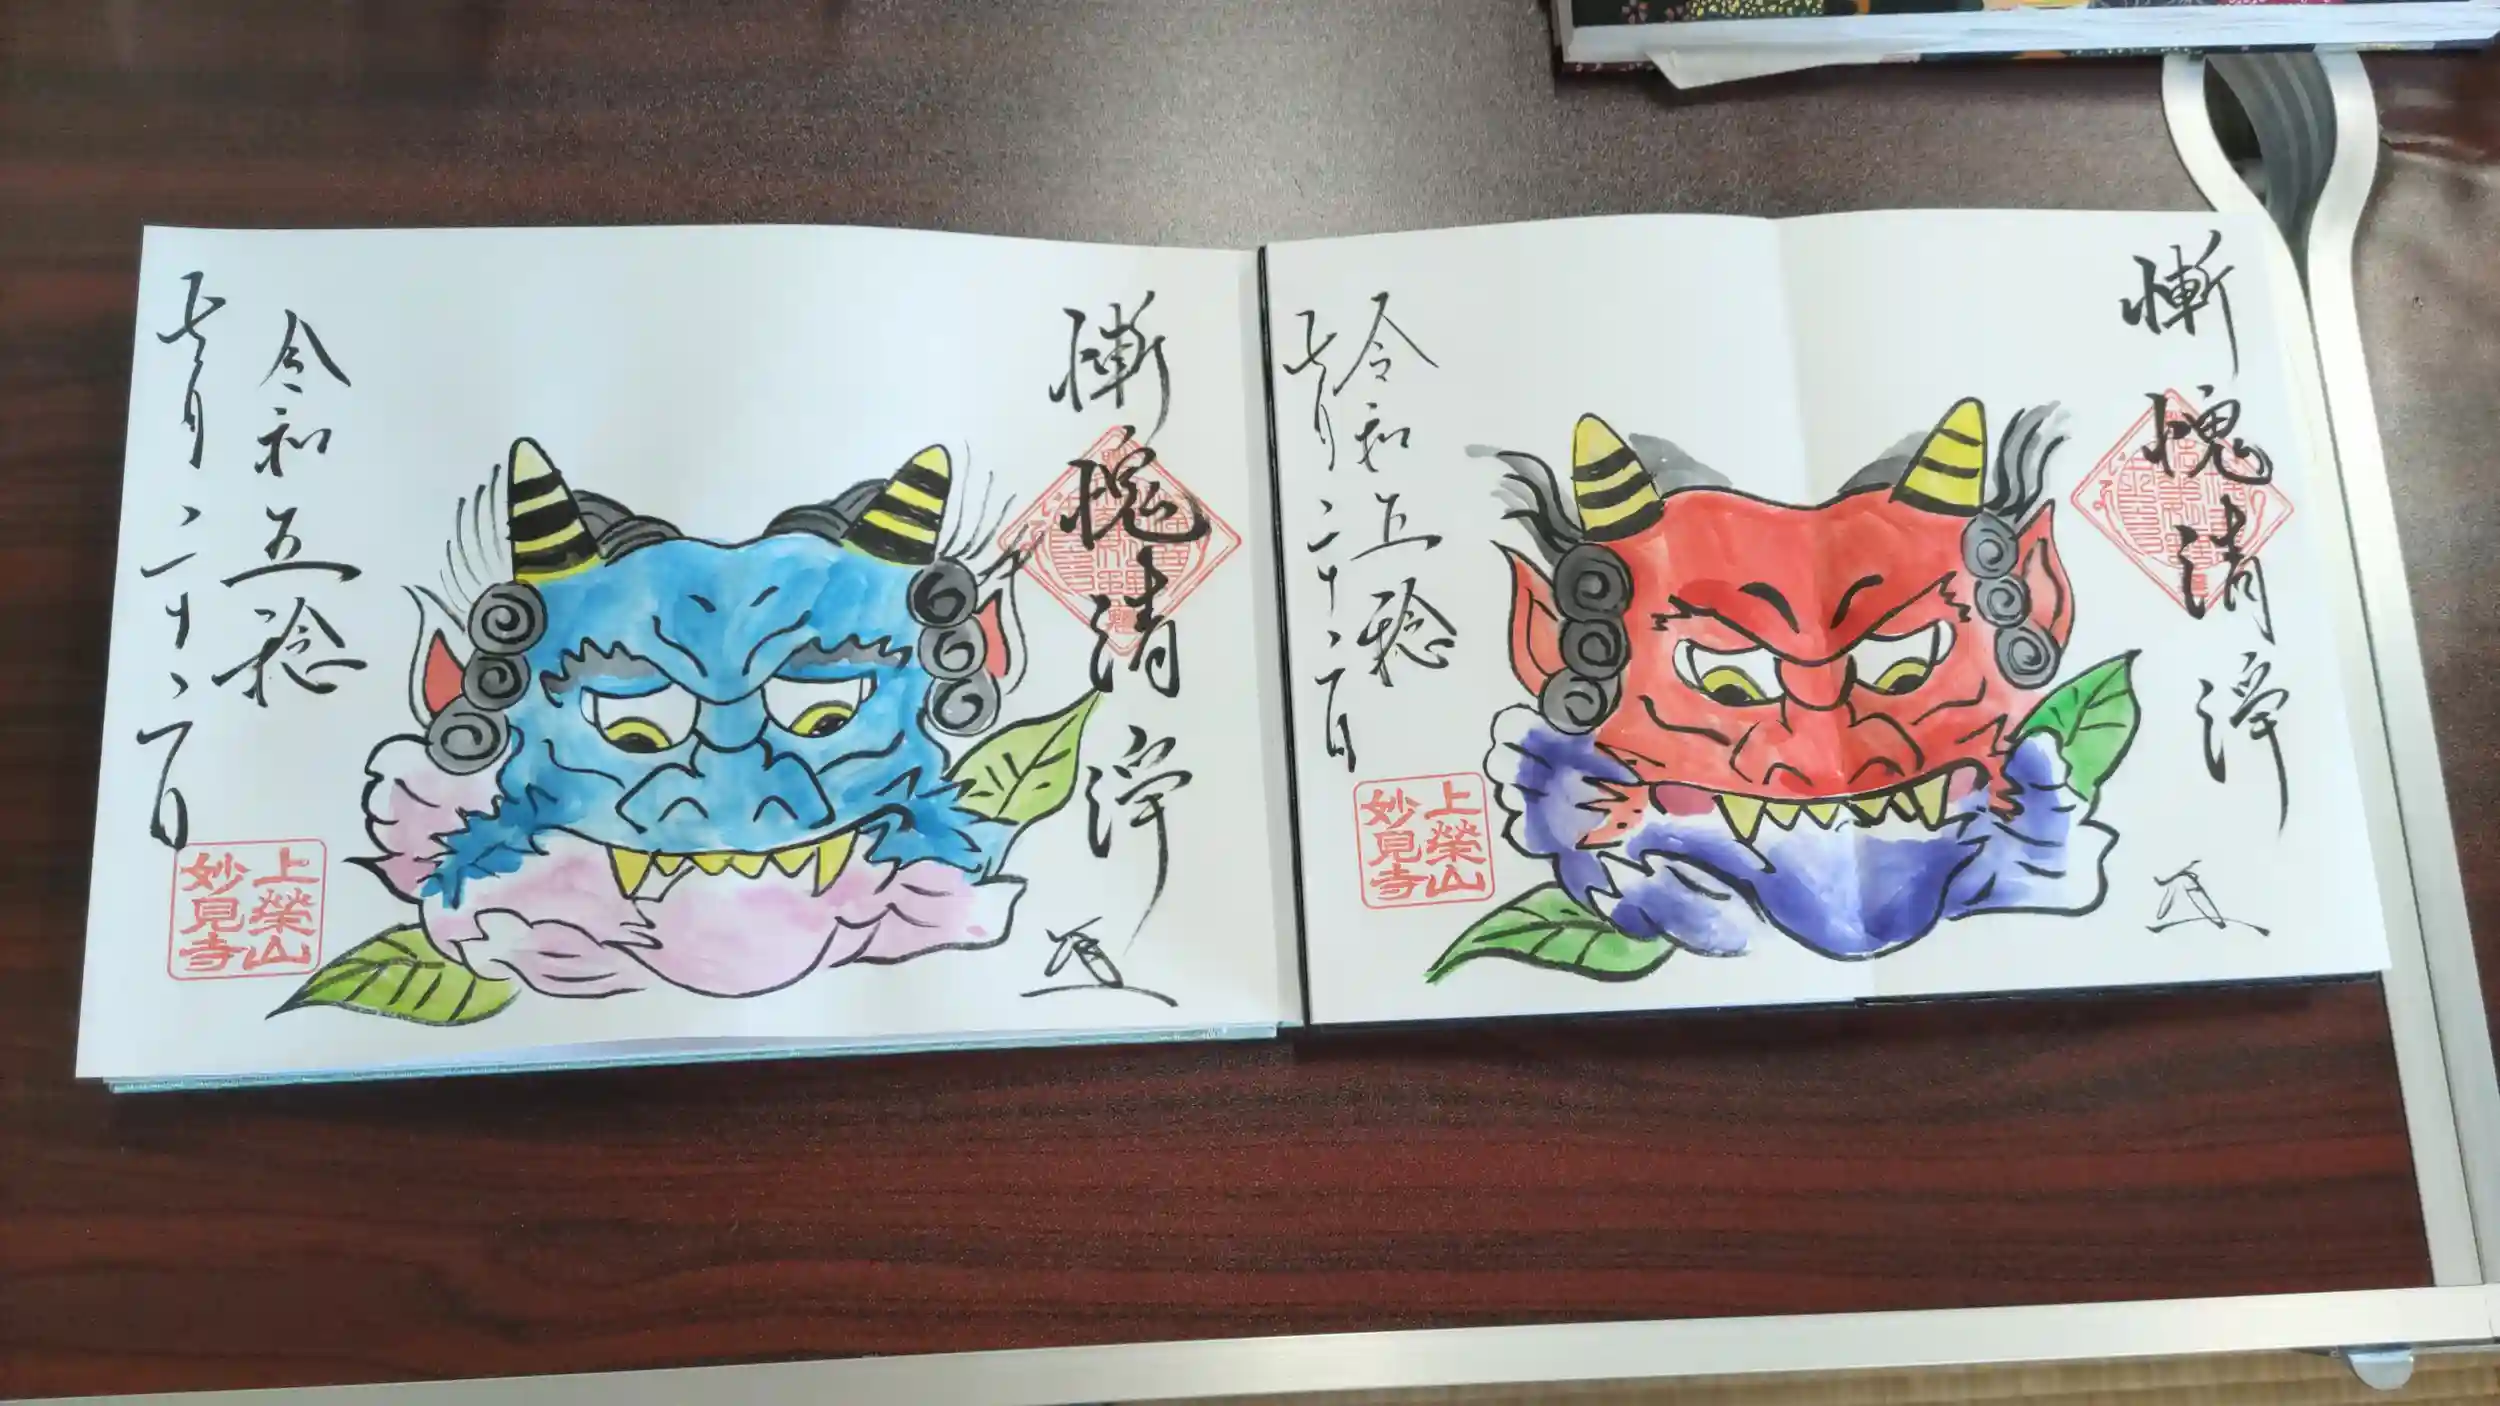 慚愧清浄
令和五稔
七月二十二日
上榮山
妙見寺
慚愧清浄
令和五稔
七月二十二日
上榮山
妙見寺